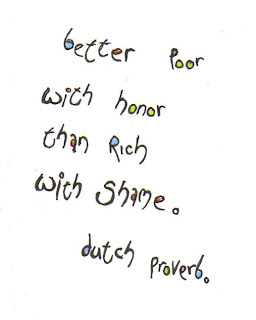 better poor
with honor
than Rich
with Shame.
dutch proverb.